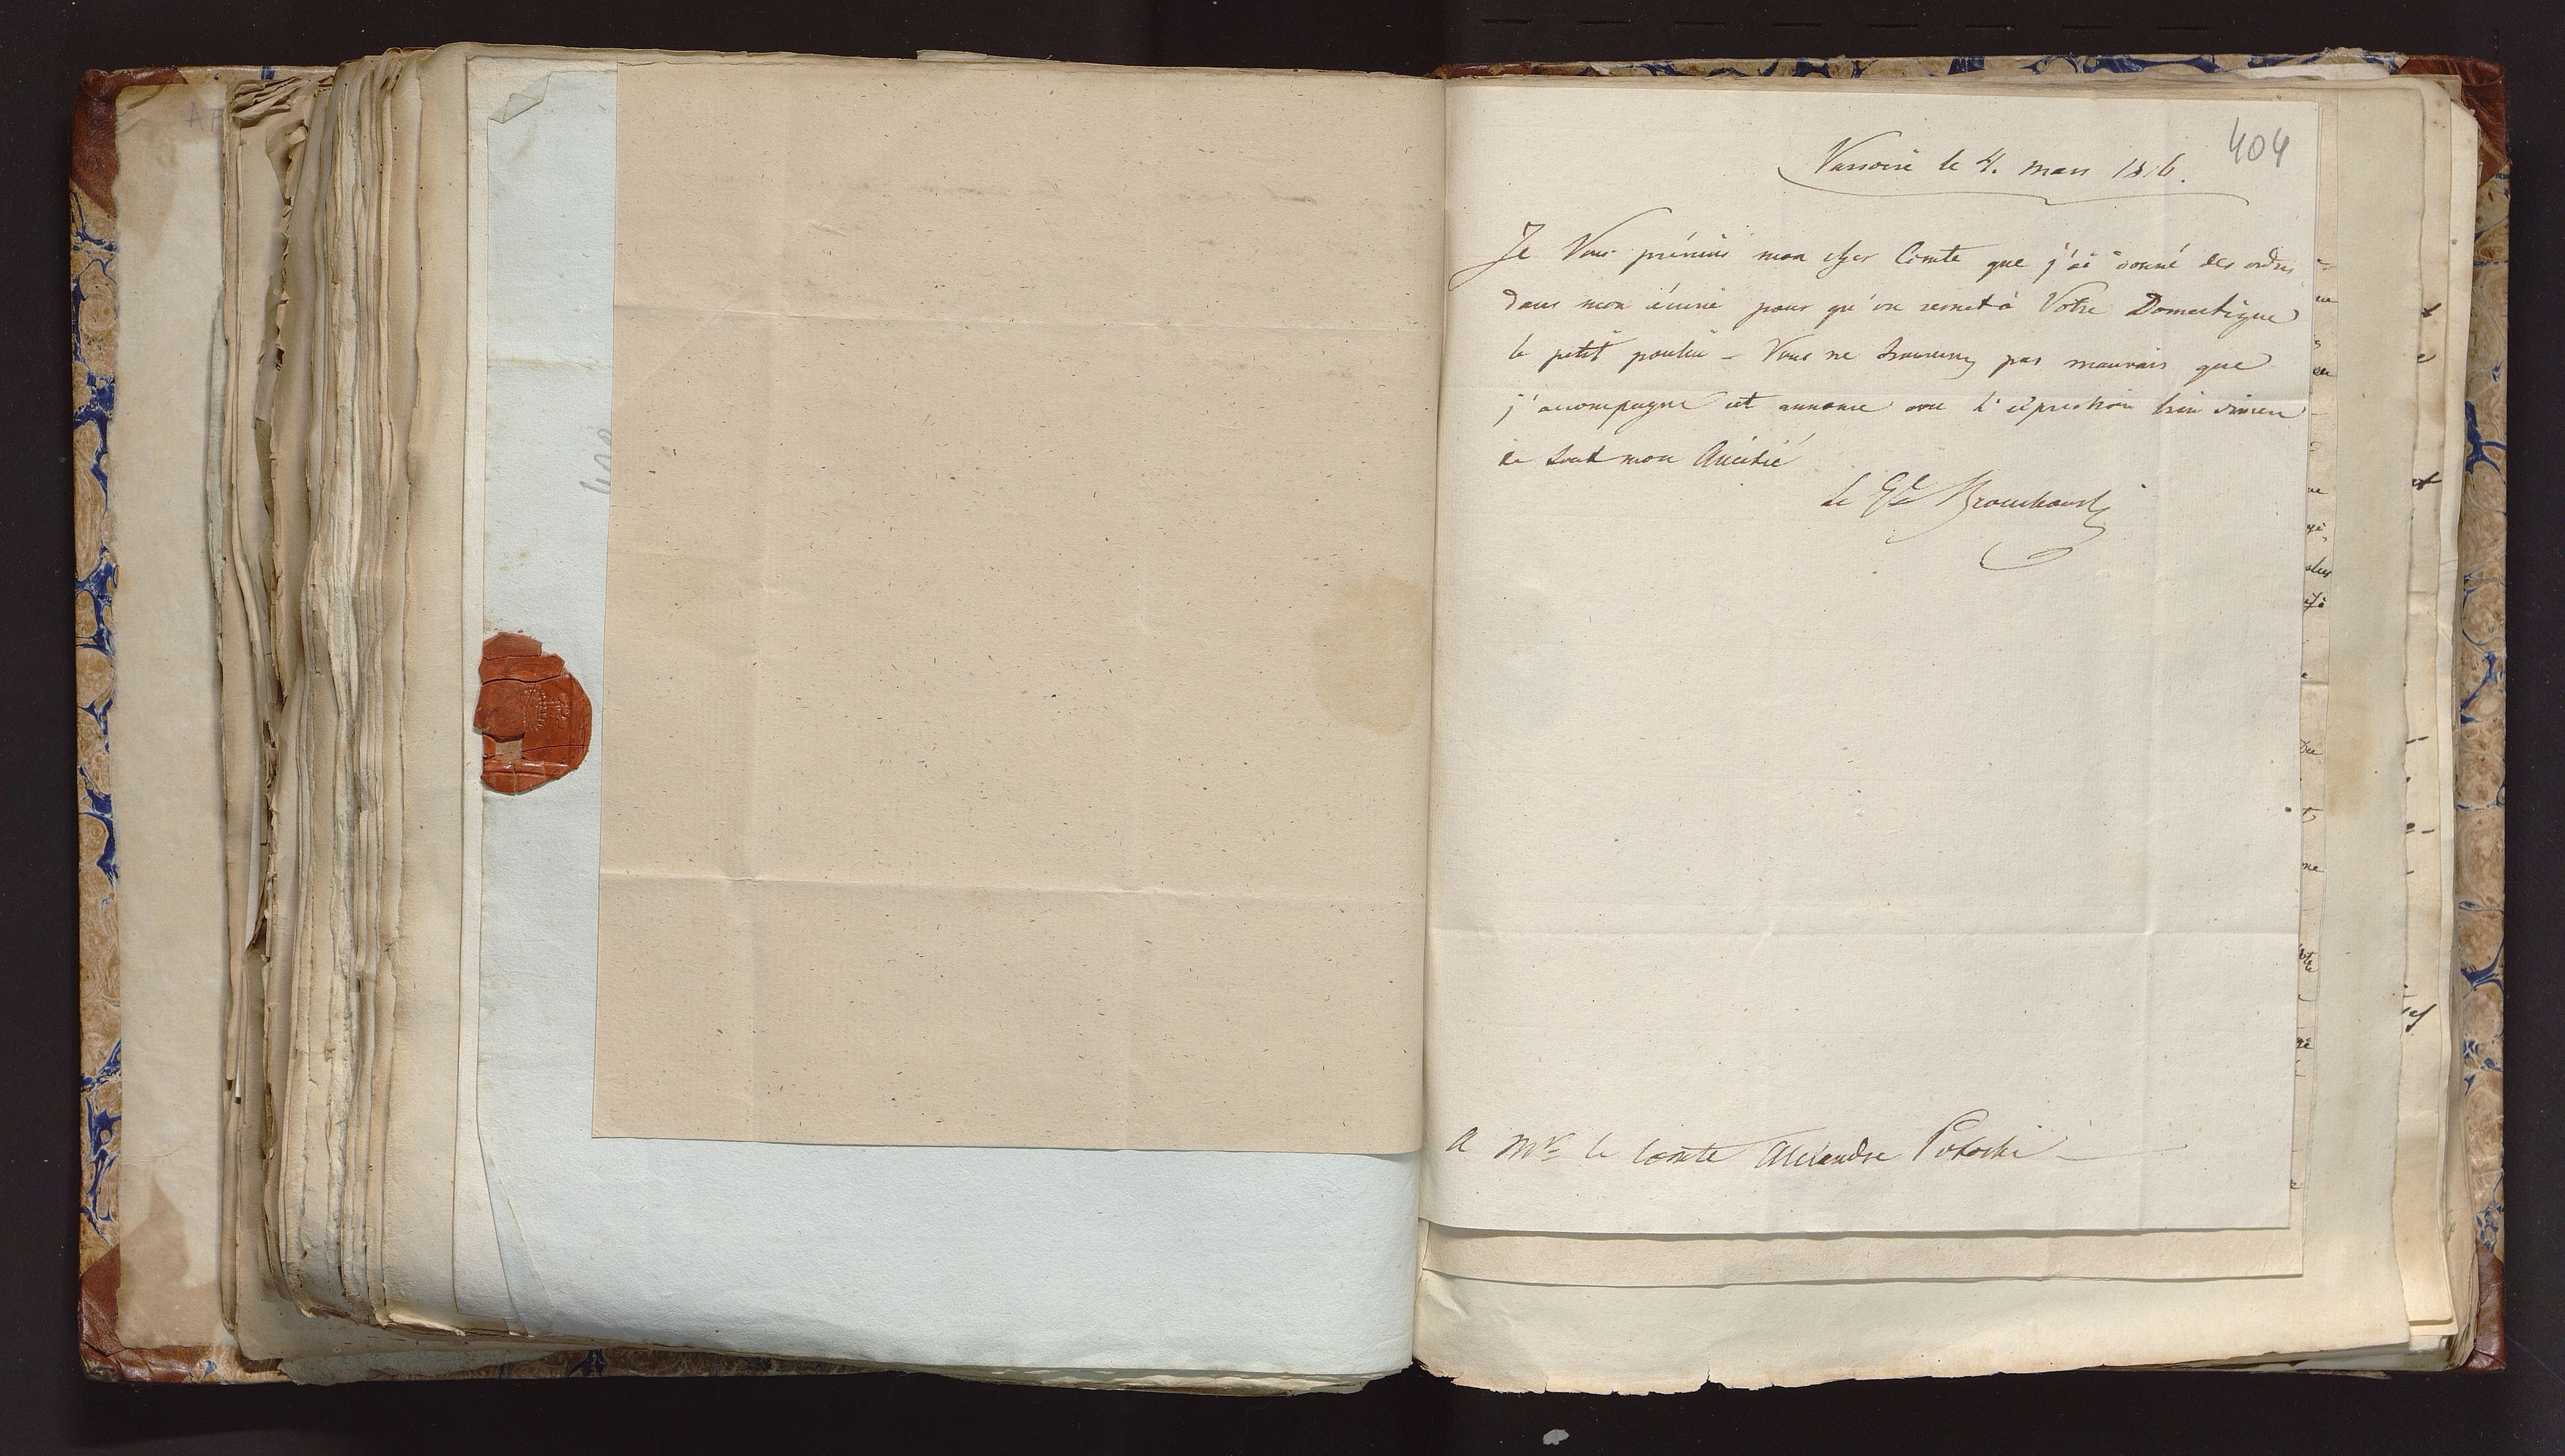 404
Varsovie le 4. mars 1816.
Je Vous préviens mon cher Comte que j'ai donné des ordres
dans mon écurie pour qu'on remet à Votre Domestique
le petit poulin – Vous ne trouverez pas mauvais que
j'accompagne cet annonce avec l'expression bien sincere
de tout mon Amitié
Le Gl
A Mr le Comte Alexandre Potocki